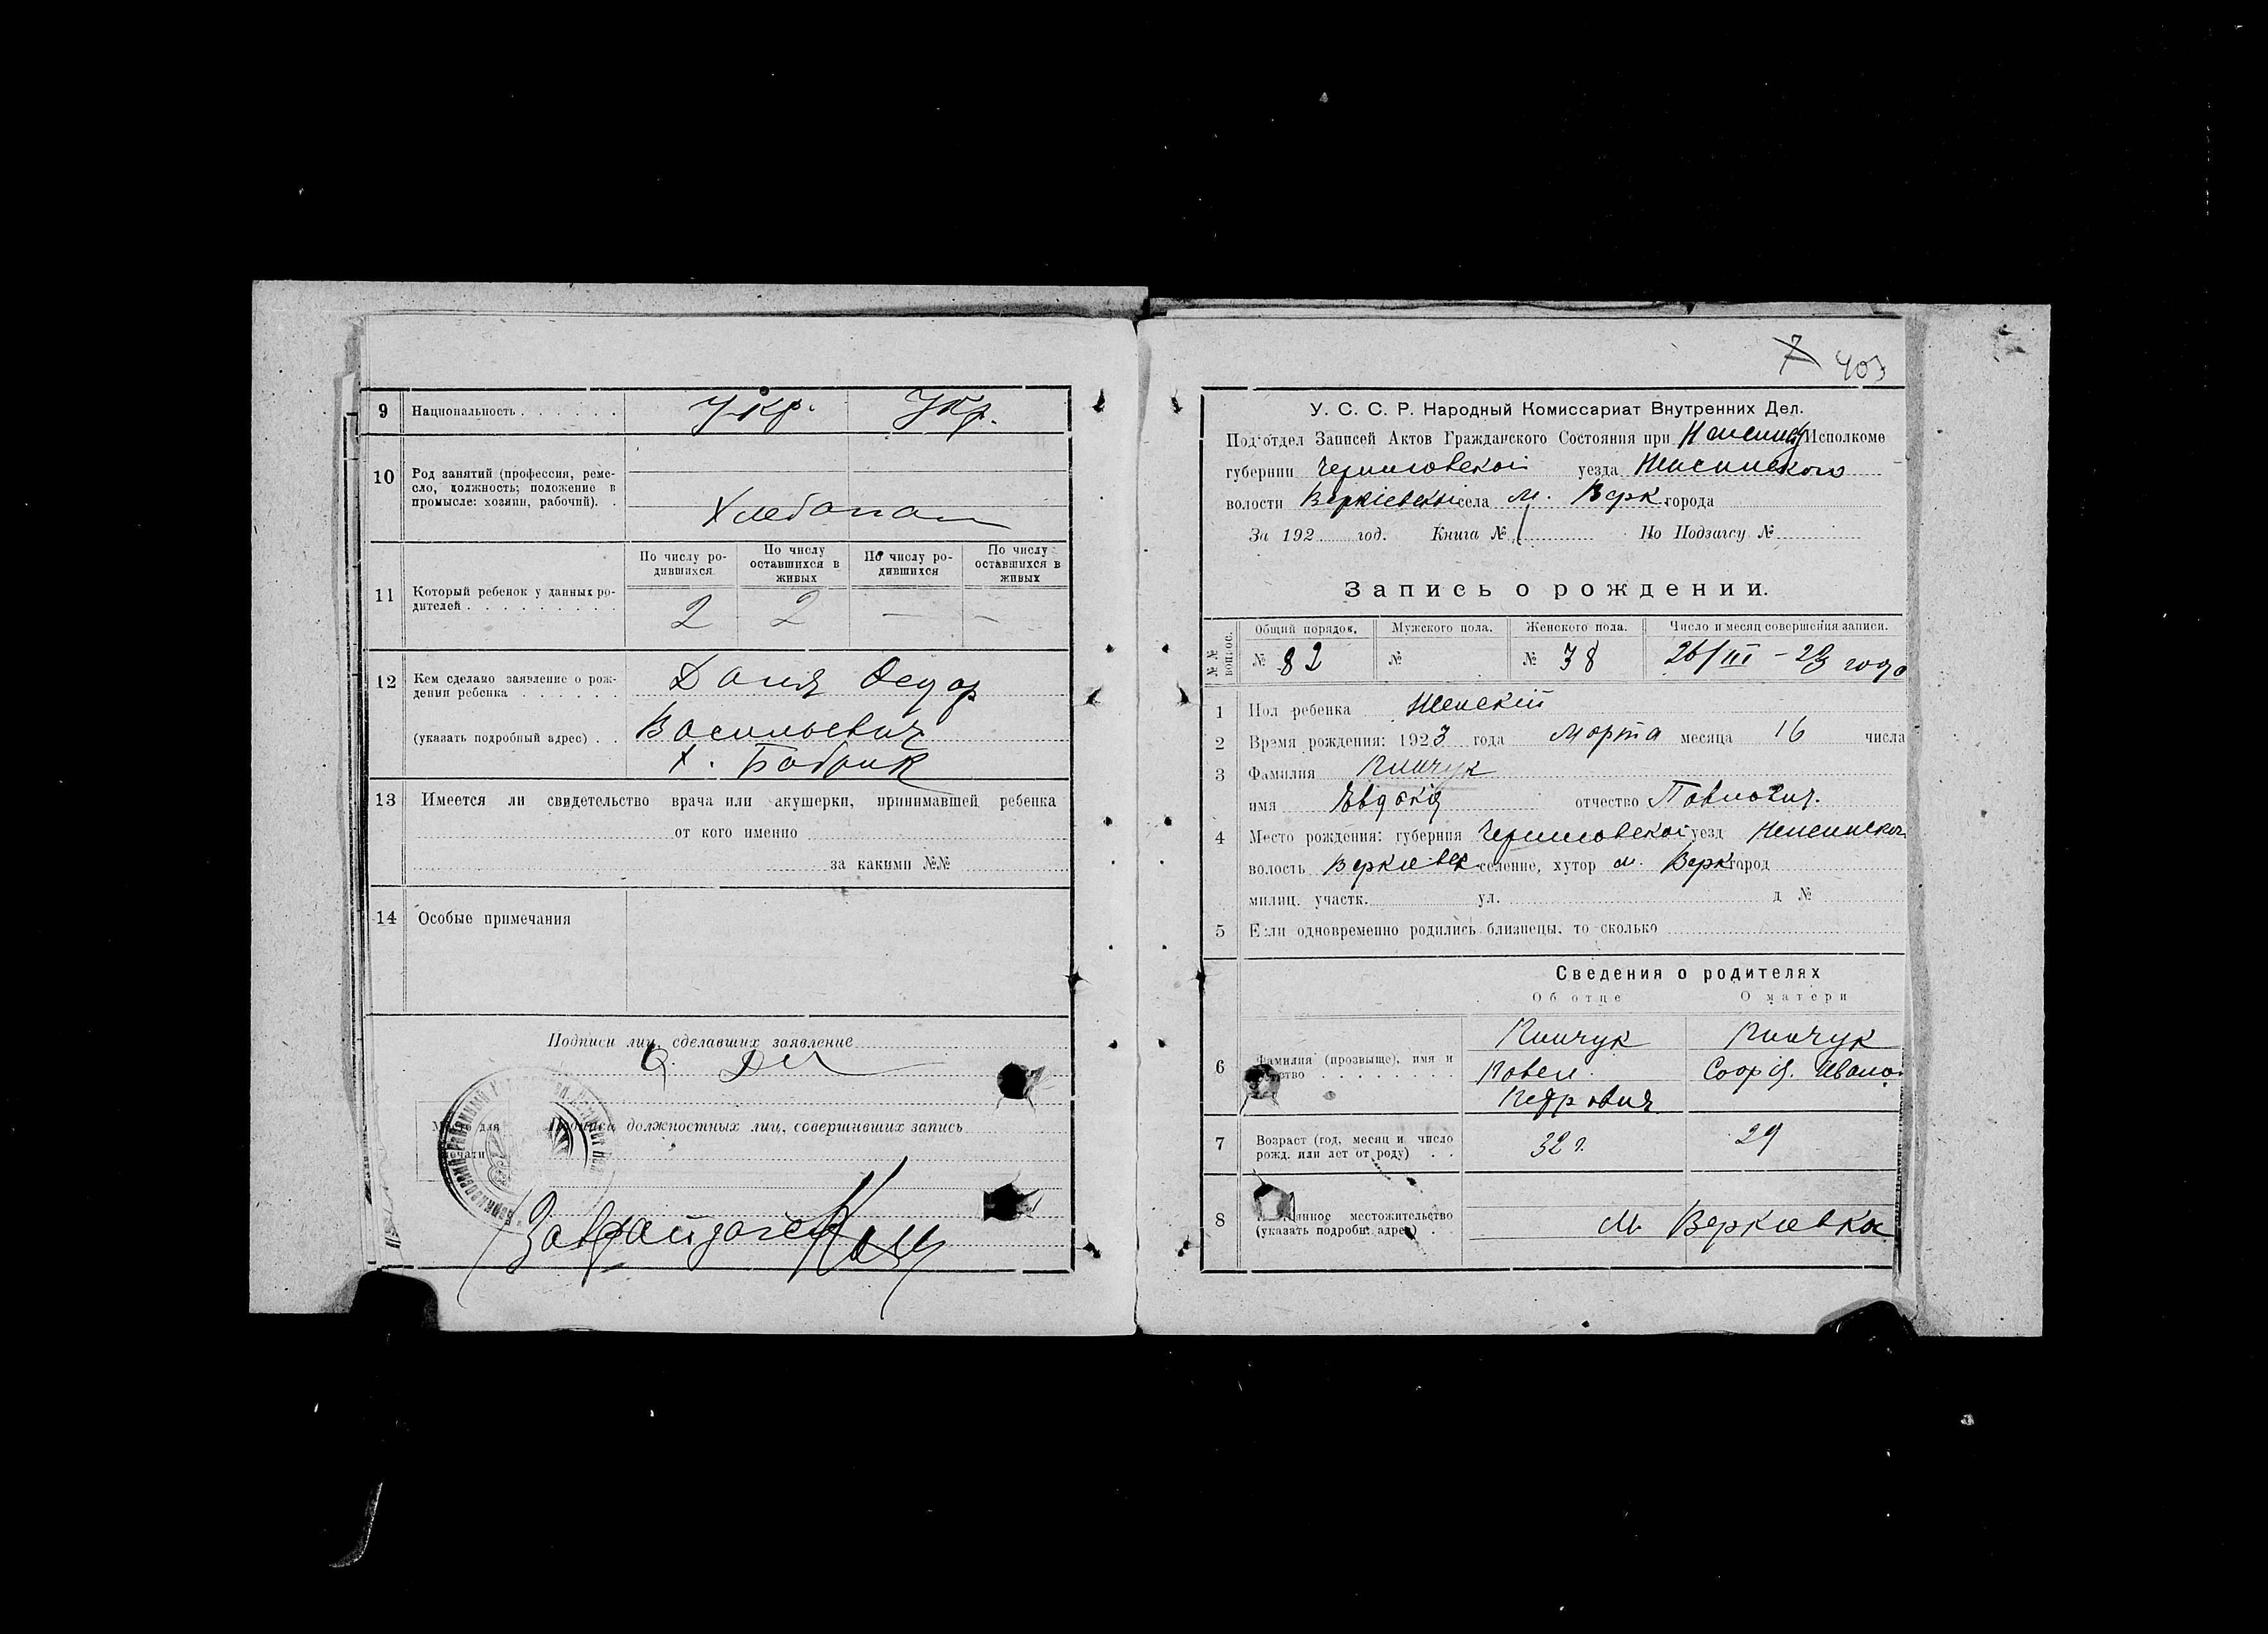 9 Национальность . . . . . . . Укр. Укр.
10 Род занятий (профессия, реме-
сло, должность; положение в
промысле: хозяин, рабочий). .
Хлебопаш
По числу ро-
дившихся
По числу
оставшихся в
живых
По числу ро-
дившихся
По числу
оставшихся в
живых
11 Который ребенок у данных ро-
дителей . . . . . . . . . .
2 2 — —
12 Кем сделано заявление о рож-
дении ребенка . . . . . .
(указать подробный адрес) . .
Федор
Васильевич
х. Бобрик
13 Имеется ли свидетельство врача или акушерки, принимавшей ребенка
от кого именно
за какими №№
14 Особые примечания
Подписи лиц, сделавших заявление
М для
печати
Подписи должностных лиц, совершивших запись
7 403
У. С. С. Р. Народный Комиссариат Внутренних Дел.
Подотдел Записей Актов Гражданского Состояния при Исполкоме
губернии Черниговской уезда Неженского
волости Веркіевской села м. Верк города
За 192 год. Книга № По Подзагсу №
Запись о рождении.
№№ вопрос.
Общий порядок. Мужского пола. Женского пола. Число и месяц совершения записи.
№ 82 № № 38 26/III – 23 года
1 Пол ребенка Женский
2 Время рождения: 1923 года Марта месяца 16 числа
3 Фамилия Пинчук
имя Евдокія отчество Павлович.
4 Место рождения: губерния Черниговской уезд Неженского
волость Веркиевск селение, хутор м. Верк город
милиц. участк. ул. д №
5 Если одновременно родились близнецы, то сколько
Сведения о родителях
Об отце О матери
6 Фамилия (прозвыще), имя и
отчество . . . . . . . .
Пинчук Пинчук
Павел Ивано
Петрович
7 Возраст (год, месяц и число
рожд. или лет от роду) . .
32 г. 29
8 местожительство
(указать подробн. адрес) . .
м. Веркиевка